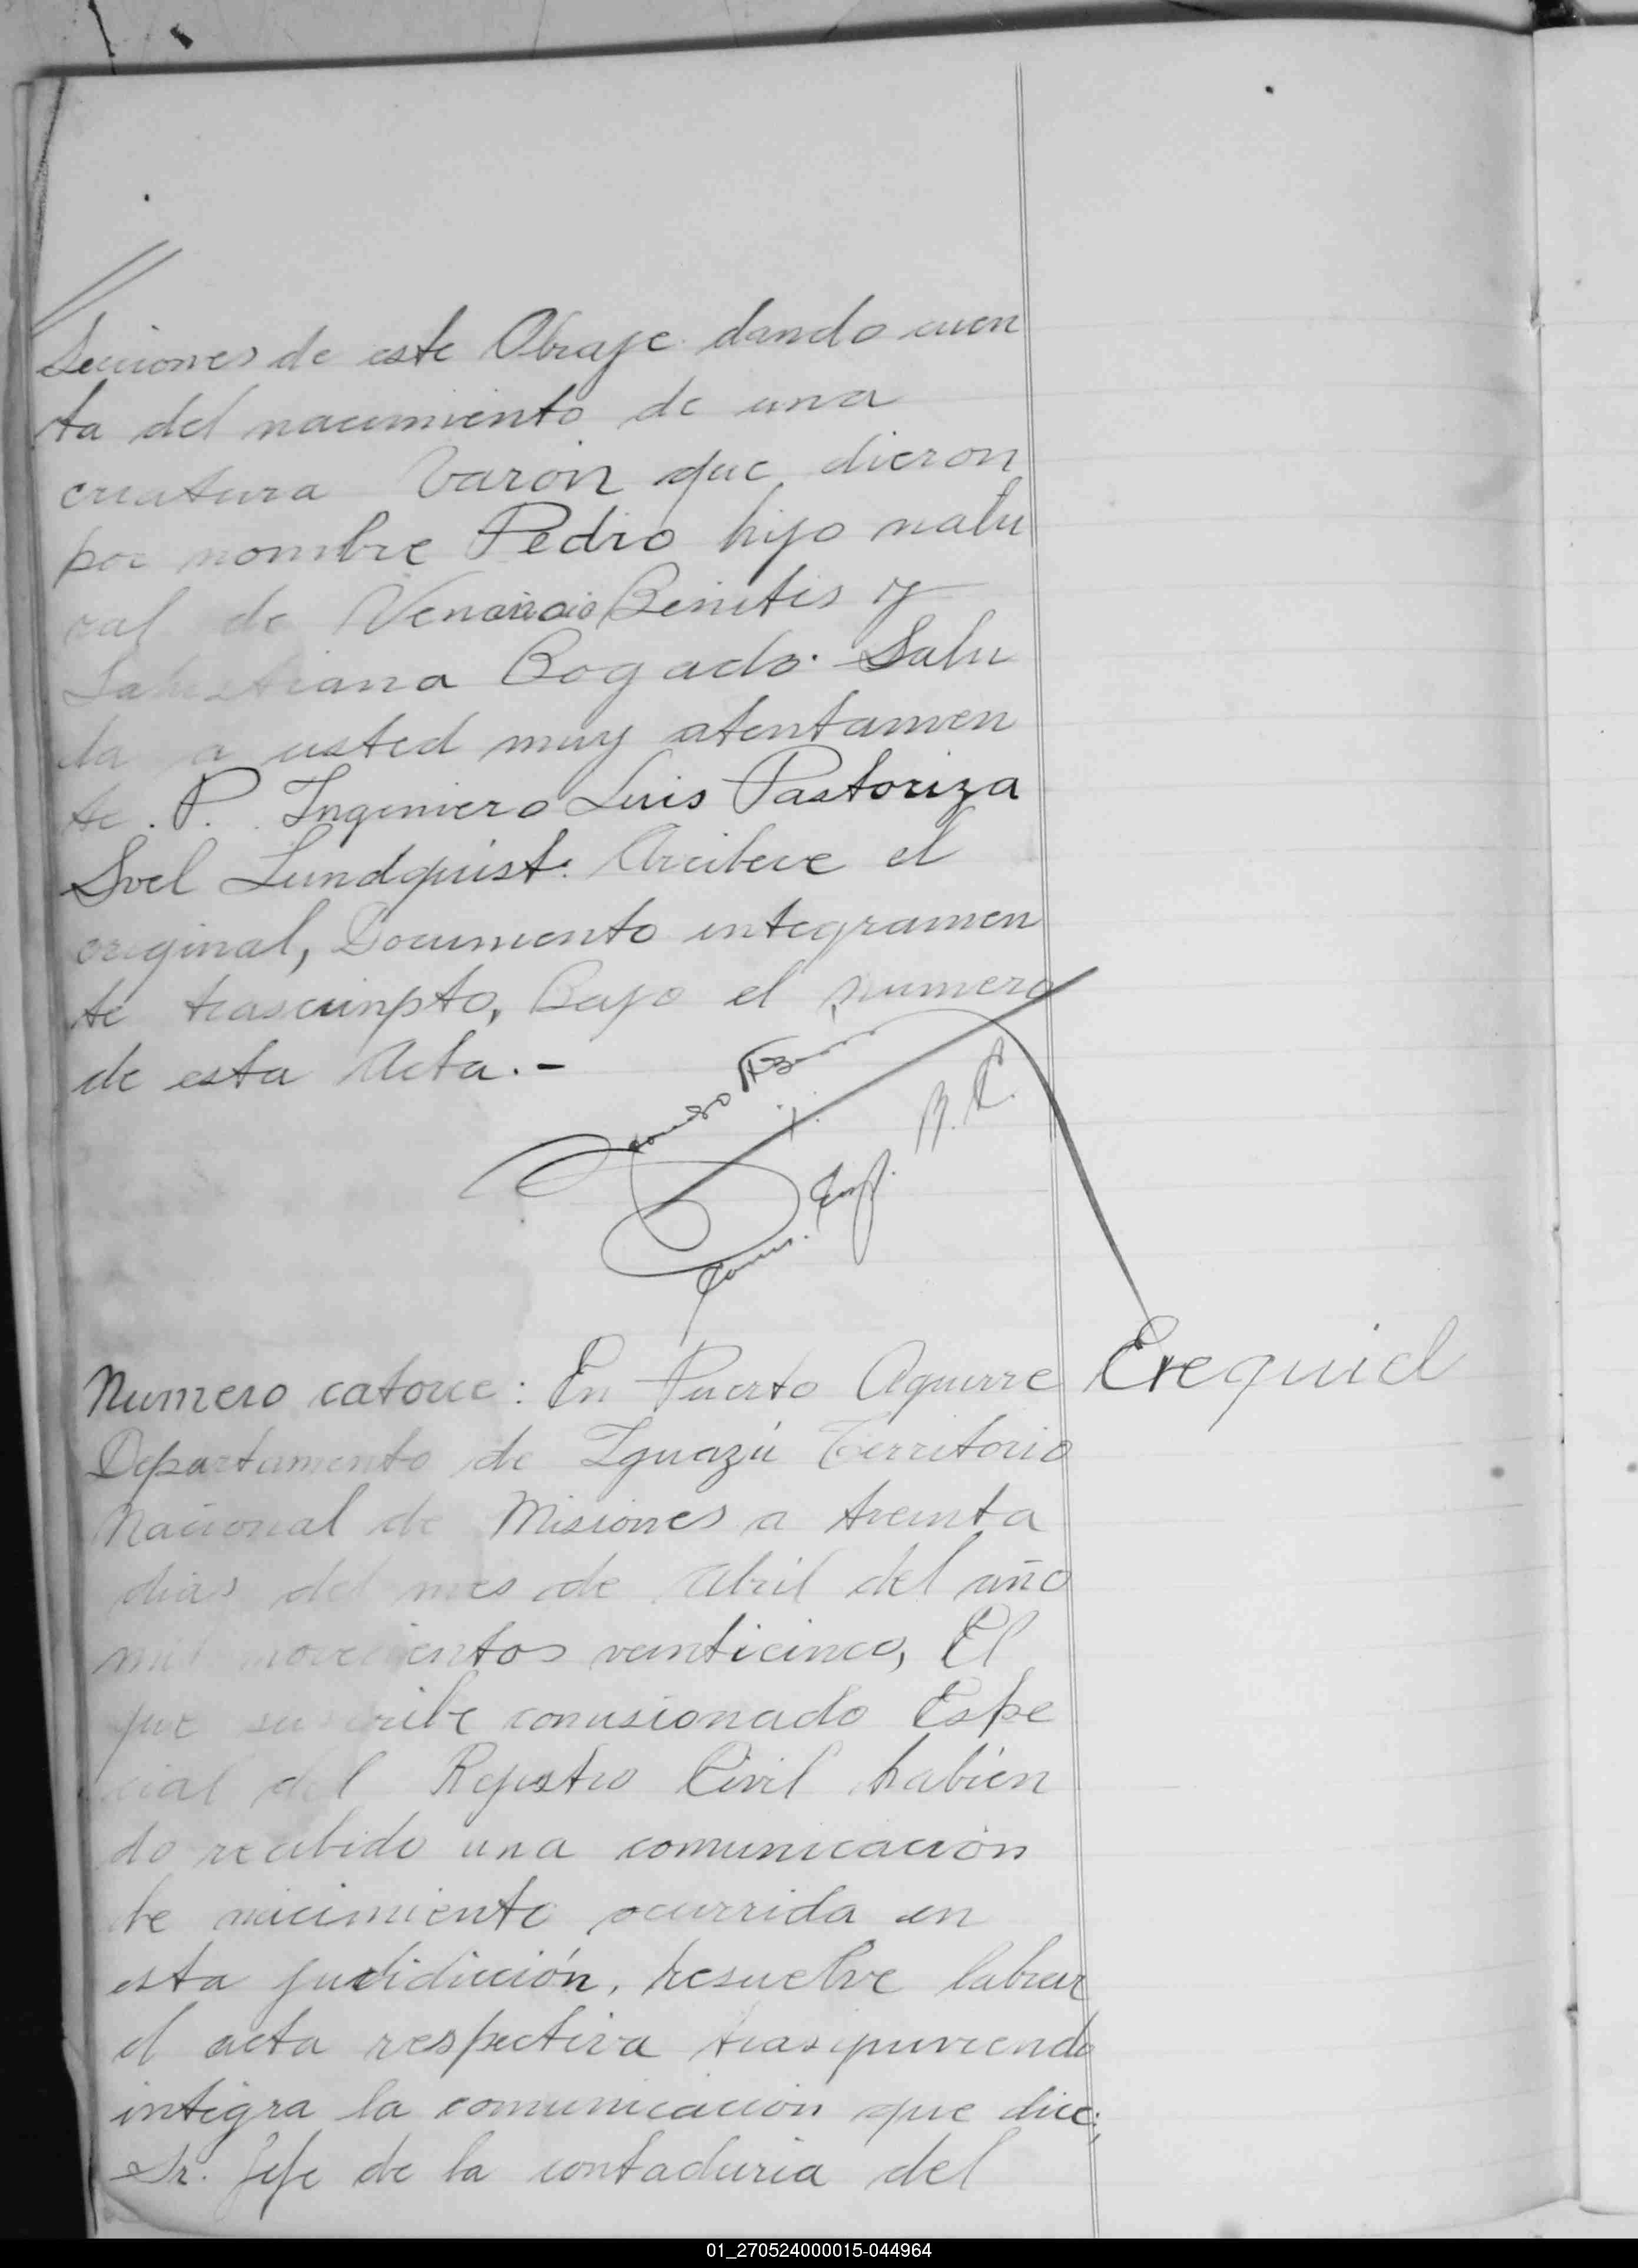 Secciones de este Obraje dando cuen
ta del nacimiento de una
criatura Varón que dieron
por nombre Pedro hijo natu
ral de Venancio Benites y
Salustiana Bogado. Salu
da a usted muy atentamen
te. P. Ingeniero Luis Pastoriza
Svel Lundquist. Archive el
original, Documento integramen
te trascripto, Bajo el numero
de esta Acta.-
Com. Esp. R. C.
Numero catorce: En Puerto Aguirre
Ezequiel
Departamento de Iguazú Territorio
Nacional de Misiones a treinta
dias del mes de Abril del año
mil novecientos veinticinco, El
que suscribe comisionado Espe
cial del Rejistro Civil habién
do recibido una comunicación
de nacimiento ocurrida en
esta judidicción, resuelve labrar
el acta respectiva
integra la comunicación que dice;
Sr. Jefe de la contaduria del
01_270524000015-044964